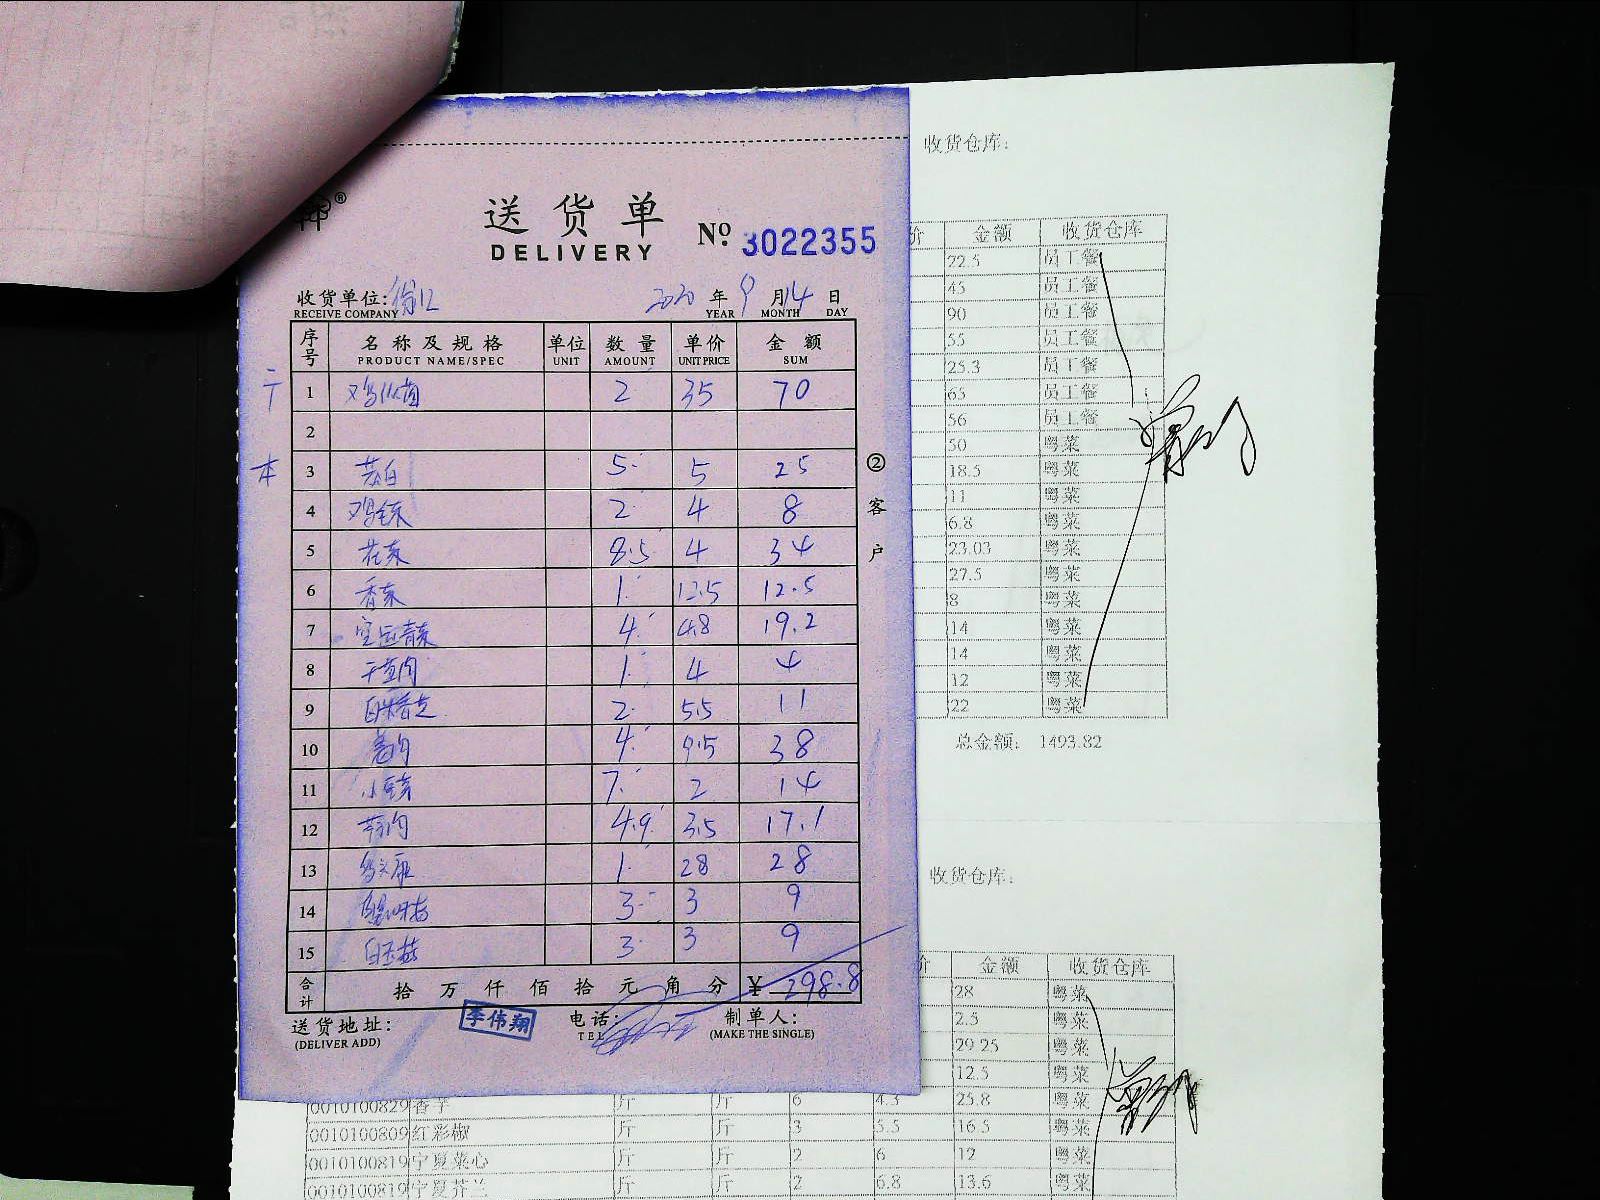 收货仓库:
送货单
DELIVERY
№ 3022355
收货单位:
RECEIVE COMPANY
2020 年 9 月 14 日
YEAR MONTH DAY
序号 名称及规格 单位 数量 单价 金额
PRODUCT NAME/SPEC UNIT AMOUNT UNIT PRICE SUM
1 2 35 70
2
本
3 5 5 25
4 2 4 8
5 花菜 8.5 4 34
6 香菜 1 12.5 12.5
7 4 4.8 19.2
8 1 4 4
9 2 5.5 11
10 4 9.5 38
11 7 2 14
12 4.9 3.5 17.1
13 1 28 28
14 3 3 9
15 白玉菇 3 3 9
合计 拾 万 仟 佰 拾 元 角 分 ¥ 298.8
② 客户
送货地址:
(DELIVER ADD)
李伟翔
电话:
TEL
制单人:
(MAKE THE SINGLE)
价 金额 收货仓库
22.5 员工餐
45 员工餐
90 员工餐
55 员工餐
25.3 员工餐
65 员工餐
56 员工餐
50 粤菜
18.5 粤菜
11 粤菜
6.8 粤菜
23.03 粤菜
27.5 粤菜
8 粤菜
14 粤菜
14 粤菜
12 粤菜
22 粤菜
总金额: 1493.82
收货仓库:
价 金额 收货仓库
28 粤菜
2.5 粤菜
29.25 粤菜
12.5 粤菜
0010100829 香芋 斤 斤 6 4.3 25.8 粤菜
0010100809 红彩椒 斤 斤 3 5.5 16.5 粤菜
0010100819 宁夏菜心 斤 斤 2 6 12 粤菜
0010100819 宁夏芥兰 斤 斤 2 6.8 13.6 粤菜